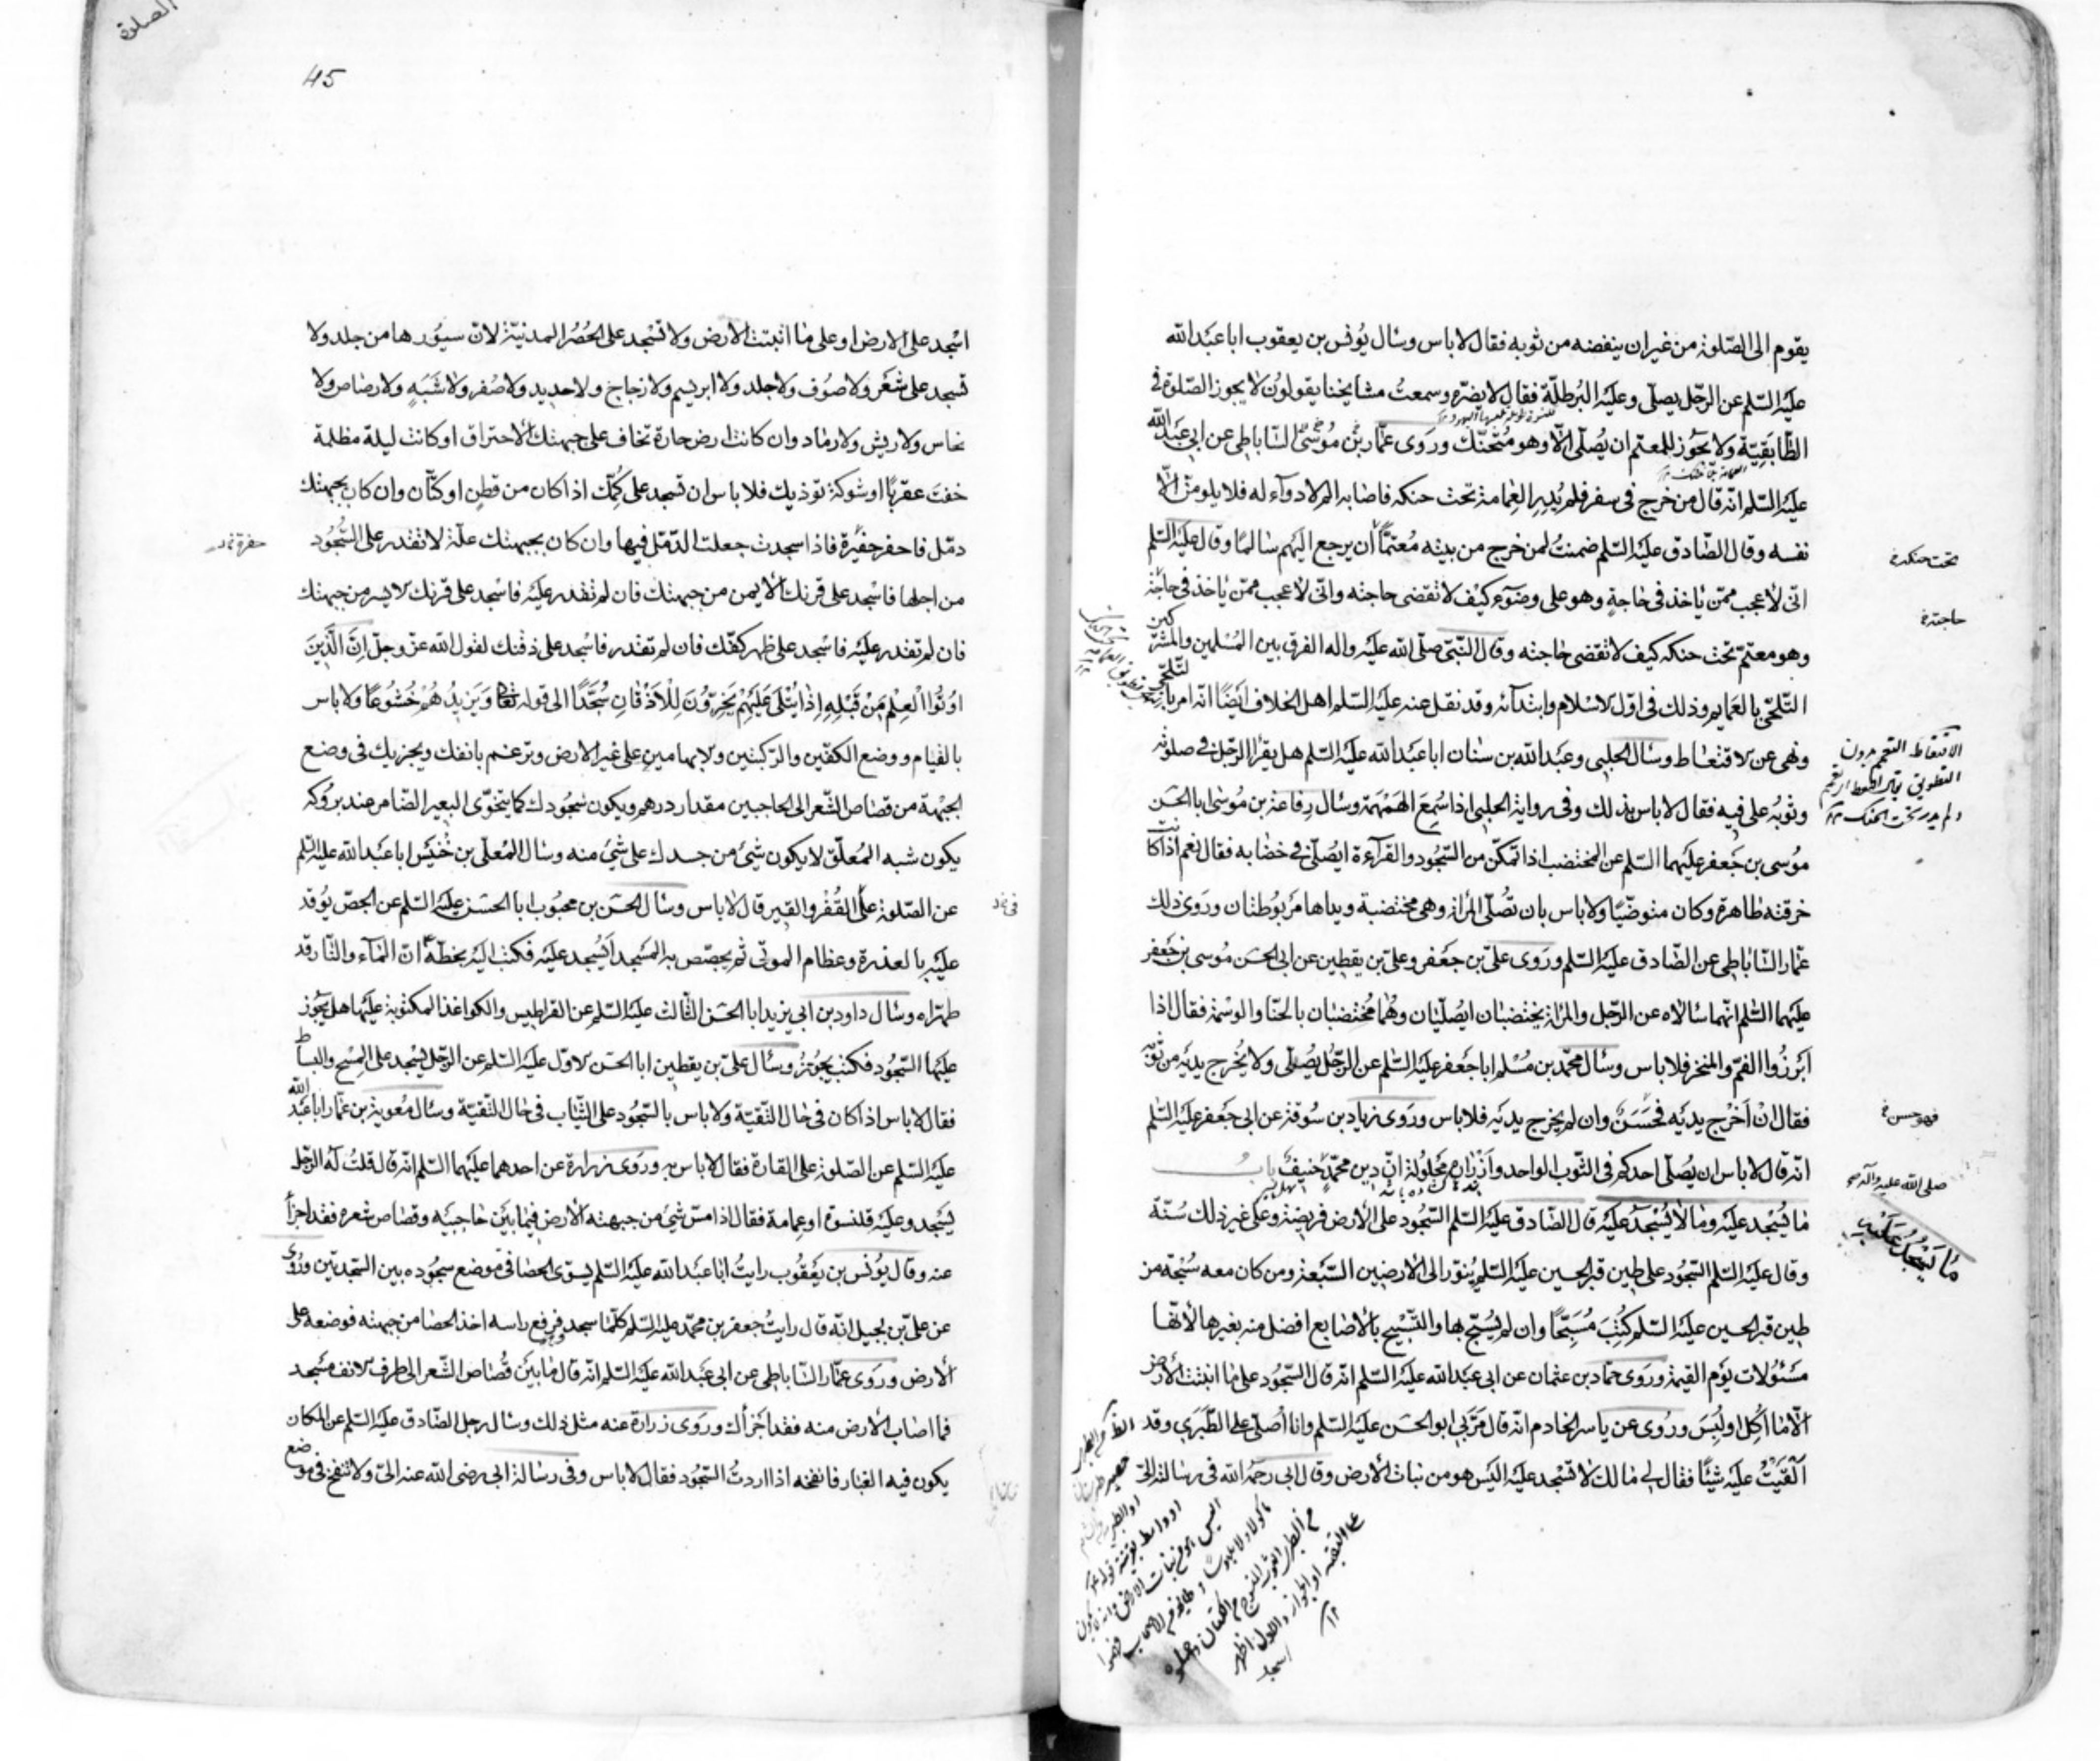 يقوم الى الصلوة من غير ان ينفضه من ثوبه فقال لا باس وسال يونس بن يعقوب ابا عبد الله
عليه السلم عن الرجل يصلى وعليه البرطلة فقال لا يضره وسمعت مشايخنا يقولون لا يجوز الصلوة فى
الطابقية ولا يجوز للمعتم ان يصلى الا وهو متحنك وروى عمار بن موسى الساباطى عن ابى عبد الله
عليه السلم انه قال من خرج فى سفر فلم يدر العمامة تحت حنكه فاصابه الم لا دواء له فلا يلومن الا
نفسه وقال الصادق عليه السلم ضمنت لمن خرج من بيته معتما ان يرجع اليهم سالما وقال عليه السلم
تحت حنكه
انى لاعجب ممن ياخذ فى حاجة وهو على وضوء كيف لا تقضى حاجته وانى لاعجب ممن ياخذ فى حاجة
حاجته
وهو معتم تحت حنكه كيف لا تقضى حاجته وقال النبى صلى الله عليه واله الفرق بين المسلمين والمشركين
التلحى بالعمايم وذلك فى اول الاسلام وابتدائه وقد نقل عنه عليه السلم اهل الخلاف ايضا انه امر بالتلحى
ونهى عن الاقتعاط وسال الحلبى وعبد الله بن سنان ابا عبد الله عليه السلم هل يقرا الرجل فى صلوته
وثوبه على فيه فقال لا باس بذلك وفى رواية الحلبى اذا سمع الهمهمة وسال رفاعة بن موسى ابا الحسن
موسى بن جعفر عليهما السلم عن المختضب اذا تمكن من السجود والقراءة ايصلى فى خضابه فقال نعم اذا كانت
خرقته طاهرة وكان متوضيا ولا باس بان تصلى المراة وهى مختضبة ويداها مربوطتان وروى ذلك
عمار الساباطى عن الصادق عليه السلم وروى على بن جعفر وعلى بن يقطين عن ابى الحسن موسى بن جعفر
عليهما السلم انهما سالاه عن الرجل والمراة يختضبان ايصليان وهما مختضبان بالحنا والوسمة فقال اذا
ابرزوا الفم والمنخر فلا باس وسال محمد بن مسلم ابا جعفر عليه السلم عن الرجل يصلى ولا يخرج يديه من ثوبه
فقال ان اخرج يديه فحسن وان لم يخرج يديه فلا باس وروى زياد بن سوقة عن ابى جعفر عليه السلم
فهو حسن
انه قال لا باس ان يصلى احدكم فى الثوب الواحد وازراره محلولة ان دين محمد حنيف باب
صلى الله عليه وآله
ما يسجد عليه وما لا يسجد عليه قال الصادق عليه السلم السجود على الارض فريضة وعلى غير ذلك سنة
ما يسجد عليه
وقال عليه السلم السجود على طين قبر الحسين عليه السلم ينور الى الارضين السبعة ومن كان معه سبحة من
طين قبر الحسين عليه السلم كتب مسبحا وان لم يسبح بها والتسبيح بالاصابع افضل منه بغيرها لانها
مسئولات يوم القيمة وروى حماد بن عثمان عن ابى عبد الله عليه السلم انه قال السجود على ما انبتت الارض
الا ما اكل او لبس وروى عن ياسر الخادم انه قال مر بى ابو الحسن عليه السلم وانا اصلى على الطبرى وقد
القيت عليه شيئا فقال لى ما لك لا تسجد عليه اليس هو من نبات الارض وقال ابى رحمه الله فى رسالته الى
الصلوة
45
اسجد على الارض او على ما انبتت الارض ولا تسجد على الحصر المدنية لان سيورها من جلد ولا
تسجد على شعر ولا صوف ولا جلد ولا ابريسم ولا زجاج ولا حديد ولا صفر ولا شبه ولا رصاص ولا
نحاس ولا ريش ولا رماد وان كانت ارض حارة تخاف على جبهتك الاحتراق او كانت ليلة مظلمة
خفت عقربا او شوكة توذيك فلا باس ان تسجد على كمك اذا كان من قطن او كتان وان كان بجبهتك
دمل فاحفر حفيرة فاذا سجدت جعلت الدمل فيها وان كان بجبهتك علة لا تقدر على السجود
حفرة
من اجلها فاسجد على قرنك الايمن من جبهتك فان لم تقدر عليه فاسجد على قرنك الايسر من جبهتك
فان لم تقدر عليه فاسجد على ظهر كفك فان لم تقدر فاسجد على ذقنك لقول الله عز وجل ان الذين
اوتوا العلم من قبله اذا يتلى عليهم يخرون للاذقان سجدا الى قوله تعالى ويزيدهم خشوعا ولا باس
بالقيام ووضع الكفين والركبتين والابهامين على غير الارض وترغم بانفك ويجزيك فى وضع
الجبهة من قصاص الشعر الى الحاجبين مقدار درهم ويكون سجودك كما يتخوى البعير الضامر عند بروكه
يكون شبه المعلق لا يكون شئ من جسدك على شئ منه وسال المعلى بن خنيس ابا عبد الله عليه السلم
عن الصلوة على القفر والقير قال لا باس وسال الحسن بن محبوب ابا الحسن عليه السلم عن الجص يوقد
عليه بالعذرة وعظام الموتى ثم يجصص به المسجد ايسجد عليه فكتب اليه بخطه ان الماء والنار قد
طهراه وسال داود بن ابى يزيد ابا الحسن الثالث عليه السلم عن القراطيس والكواغذ المكتوبة عليها هل يجوز
عليها السجود فكتب يجوز وسال على بن يقطين ابا الحسن الاول عليه السلم عن الرجل يسجد على المسح والبساط
فقال لا باس اذا كان فى حال التقية ولا باس بالسجود على الثياب فى حال التقية وسال معوية بن عمار ابا عبد الله
عليه السلم عن الصلوة على القارة فقال لا باس به وروى زرارة عن احدهما عليهما السلم انه قال قلت له الرجل
يسجد وعليه قلنسوة او عمامة فقال اذا مس شئ من جبهته الارض فيما بين حاجبيه وقصاص شعره فقد اجزأ
عنه وقال يونس بن يعقوب رايت ابا عبد الله عليه السلم يسوى الحصا فى موضع سجوده بين السجدتين وروى
عن على بن بجيل انه قال رايت جعفر بن محمد عليه السلم كلما سجد فرفع راسه اخذ الحصا من جبهته فوضعه على
الارض وروى عمار الساباطى عن ابى عبد الله عليه السلم انه قال ما بين قصاص الشعر الى طرف الانف مسجد
فما اصاب الارض منه فقد اجزأك وروى زرارة عنه مثل ذلك وسال رجل الصادق عليه السلم عن المكان
يكون فيه الغبار فانفخه اذا اردت السجود فقال لا باس وفى رسالة ابى رضى الله عنه الى ولا تنفخ فى موضع